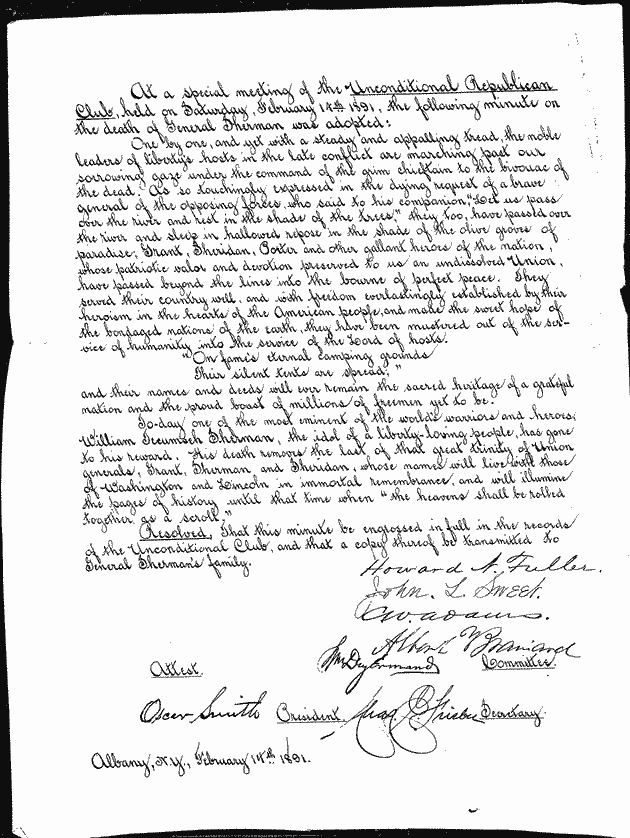 At a special meeting of the Unconditional Republican
Club, held on Saturday, February 14th 1891, the following minute on
the death of General Sherman was adopted:
One by one, and yet with a steady and appalling tread, the noble
leaders of liberty's hosts in the late conflict are marching past our
sorrowing gaze under the command of the grim chieftain to the bivouac of
the dead. As so touchingly expressed in the dying request of a brave
general of the opposing forces, who said to his companion, "Let us pass
over the river and rest in the shade of the trees," they too, have passed over
the river and sleep in hallowed repose in the shade of the olive groves of
paradise; Grant, Sheridan, Porter and other gallant heroes of the nation,
whose patriotic valor and devotion preserved to us an undissolved Union,
have passed beyond the lines into the bourne of perfect peace. They
served their country well, and with freedom everlastingly established by their
heroism in the hearts of the American people, and made the sweet hope of
the bondaged nations of the earth, they have been mustered out of the ser-
vice of humanity into the service of the Lord of hosts.
"On fame's eternal camping grounds
Their silent tents are spread;"
and their names and deeds will ever remain the sacred heritage of a grateful
nation and the proud boast of millions of freemen yet to be.
To-day one of the most eminent of the world's warriors and heroes,
William Tecumseh Sherman, the idol of a liberty-loving people, has gone
to his reward. His death removes the last of that great trinity of Union
generals, Grant, Sherman and Sheridan, whose names will live with those
of Washington and Lincoln in immortal remembrance, and will illumine
the pages of history until that time when "the heavens shall be rolled
together as a scroll."
Resolved, That this minute be engrossed in full in the records
of the Unconditional Club, and that a copy thereof be transmitted to
General Sherman's family.
Howard N. Fuller.
John L. Sweet.
C.W. Adams.
Albert
Wm Deyermand Committee.
Attest.
Oscar Smith President. Secretary.
Albany, N.Y., February 14th 1891.